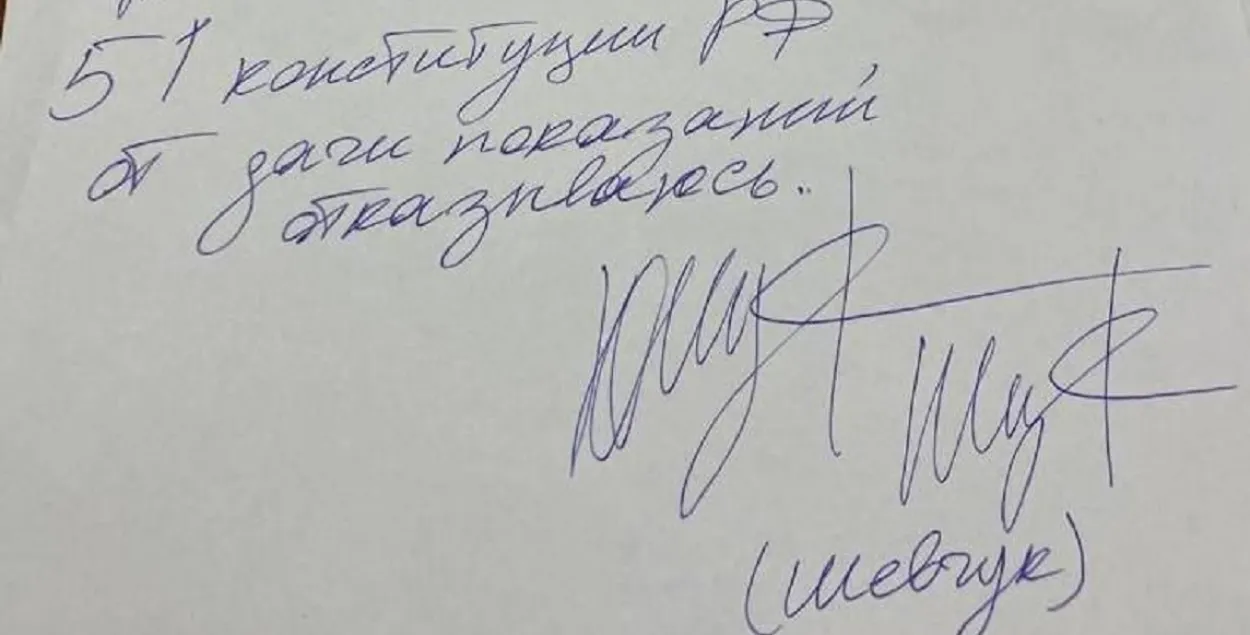 51 конституции РФ
от дачи показаний
отказываюсь..
(Шевчук)